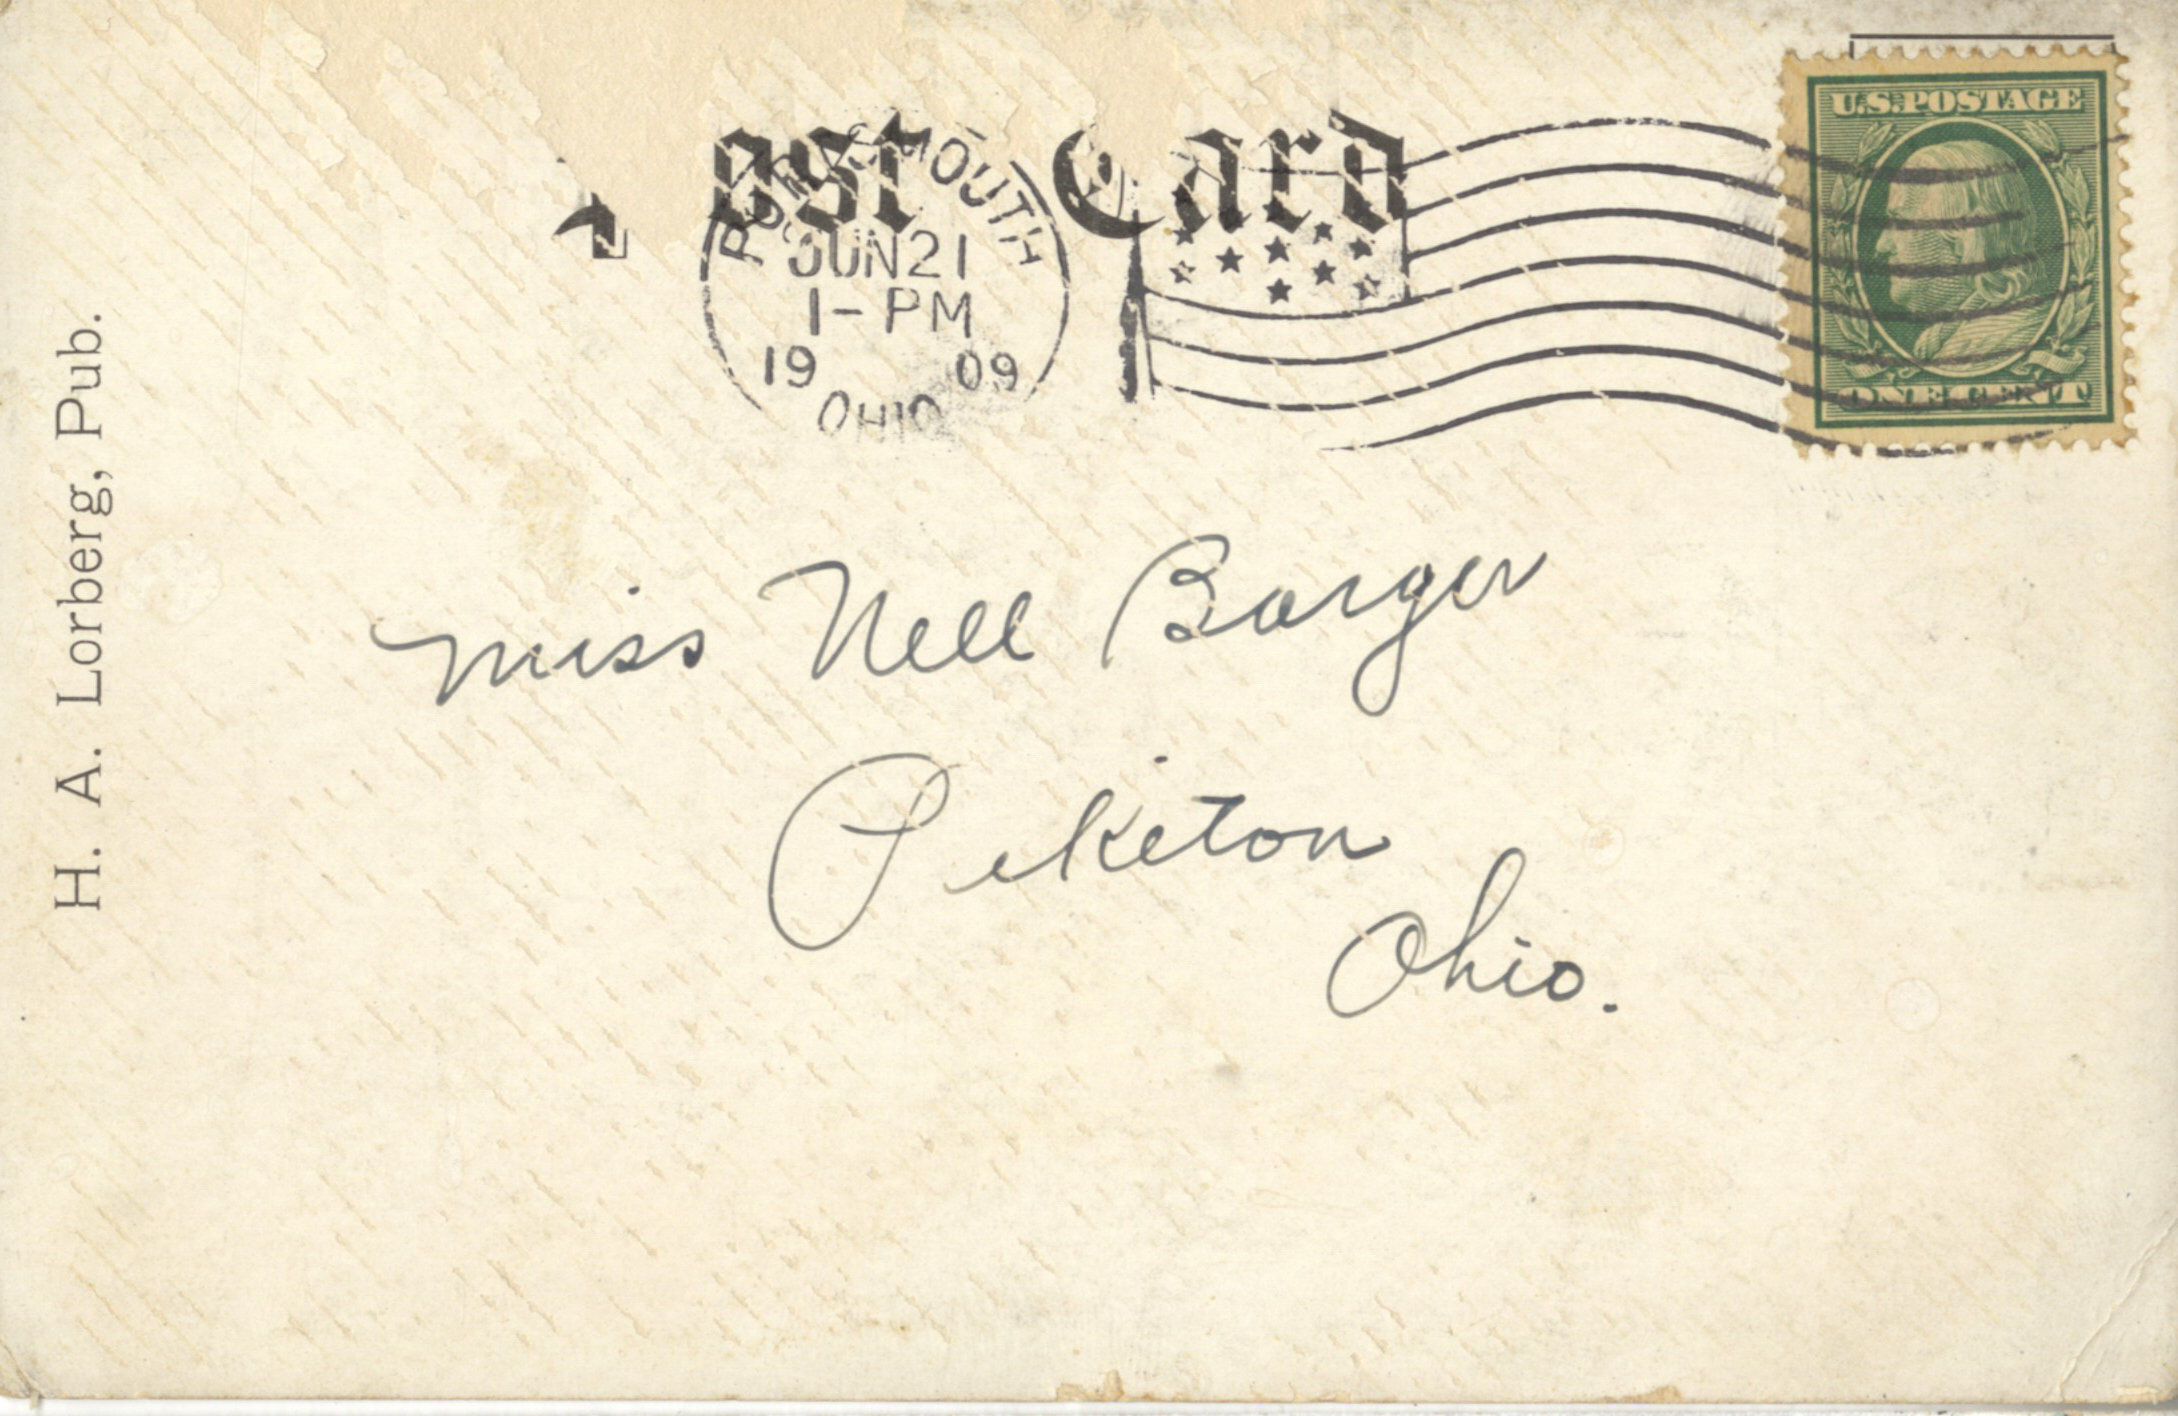 Post Card
PORTSMOUTH
JUN 21
1-PM
19 09
OHIO
U.S. POSTAGE
ONE CENT
H. A. Lorberg, Pub.
Miss Nell Barger
Piketon
Ohio.